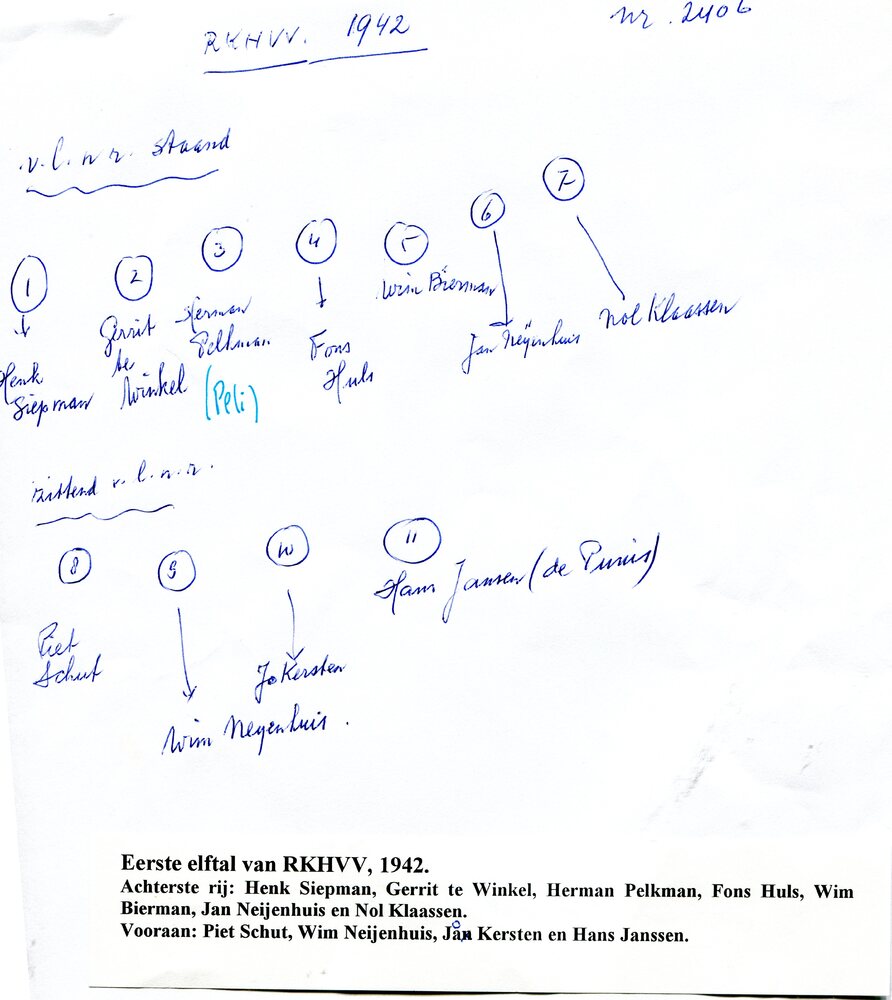 RKHVV. 1942
nr. 2406
v.l.n.r. staand
1 2 3 4 5 6 7
Henk
Siepman
Gerrit
te
Winkel
Herman
Pelkman
(Peli)
Fons
Huls
Wim Bierman
Jan Neijenhuis
Nol Klaassen
zittend v.l.n.r.
8 9 10 11
Piet
Schut
Wim Neyenhuis.
Jo Kersten
Hans Jansen (de Punis)
Eerste elftal van RKHVV, 1942.
Achterste rij: Henk Siepman, Gerrit te Winkel, Herman Pelkman, Fons Huls, Wim
Bierman, Jan Neijenhuis en Nol Klaassen.
Vooraan: Piet Schut, Wim Neijenhuis, Jan Kersten en Hans Janssen.